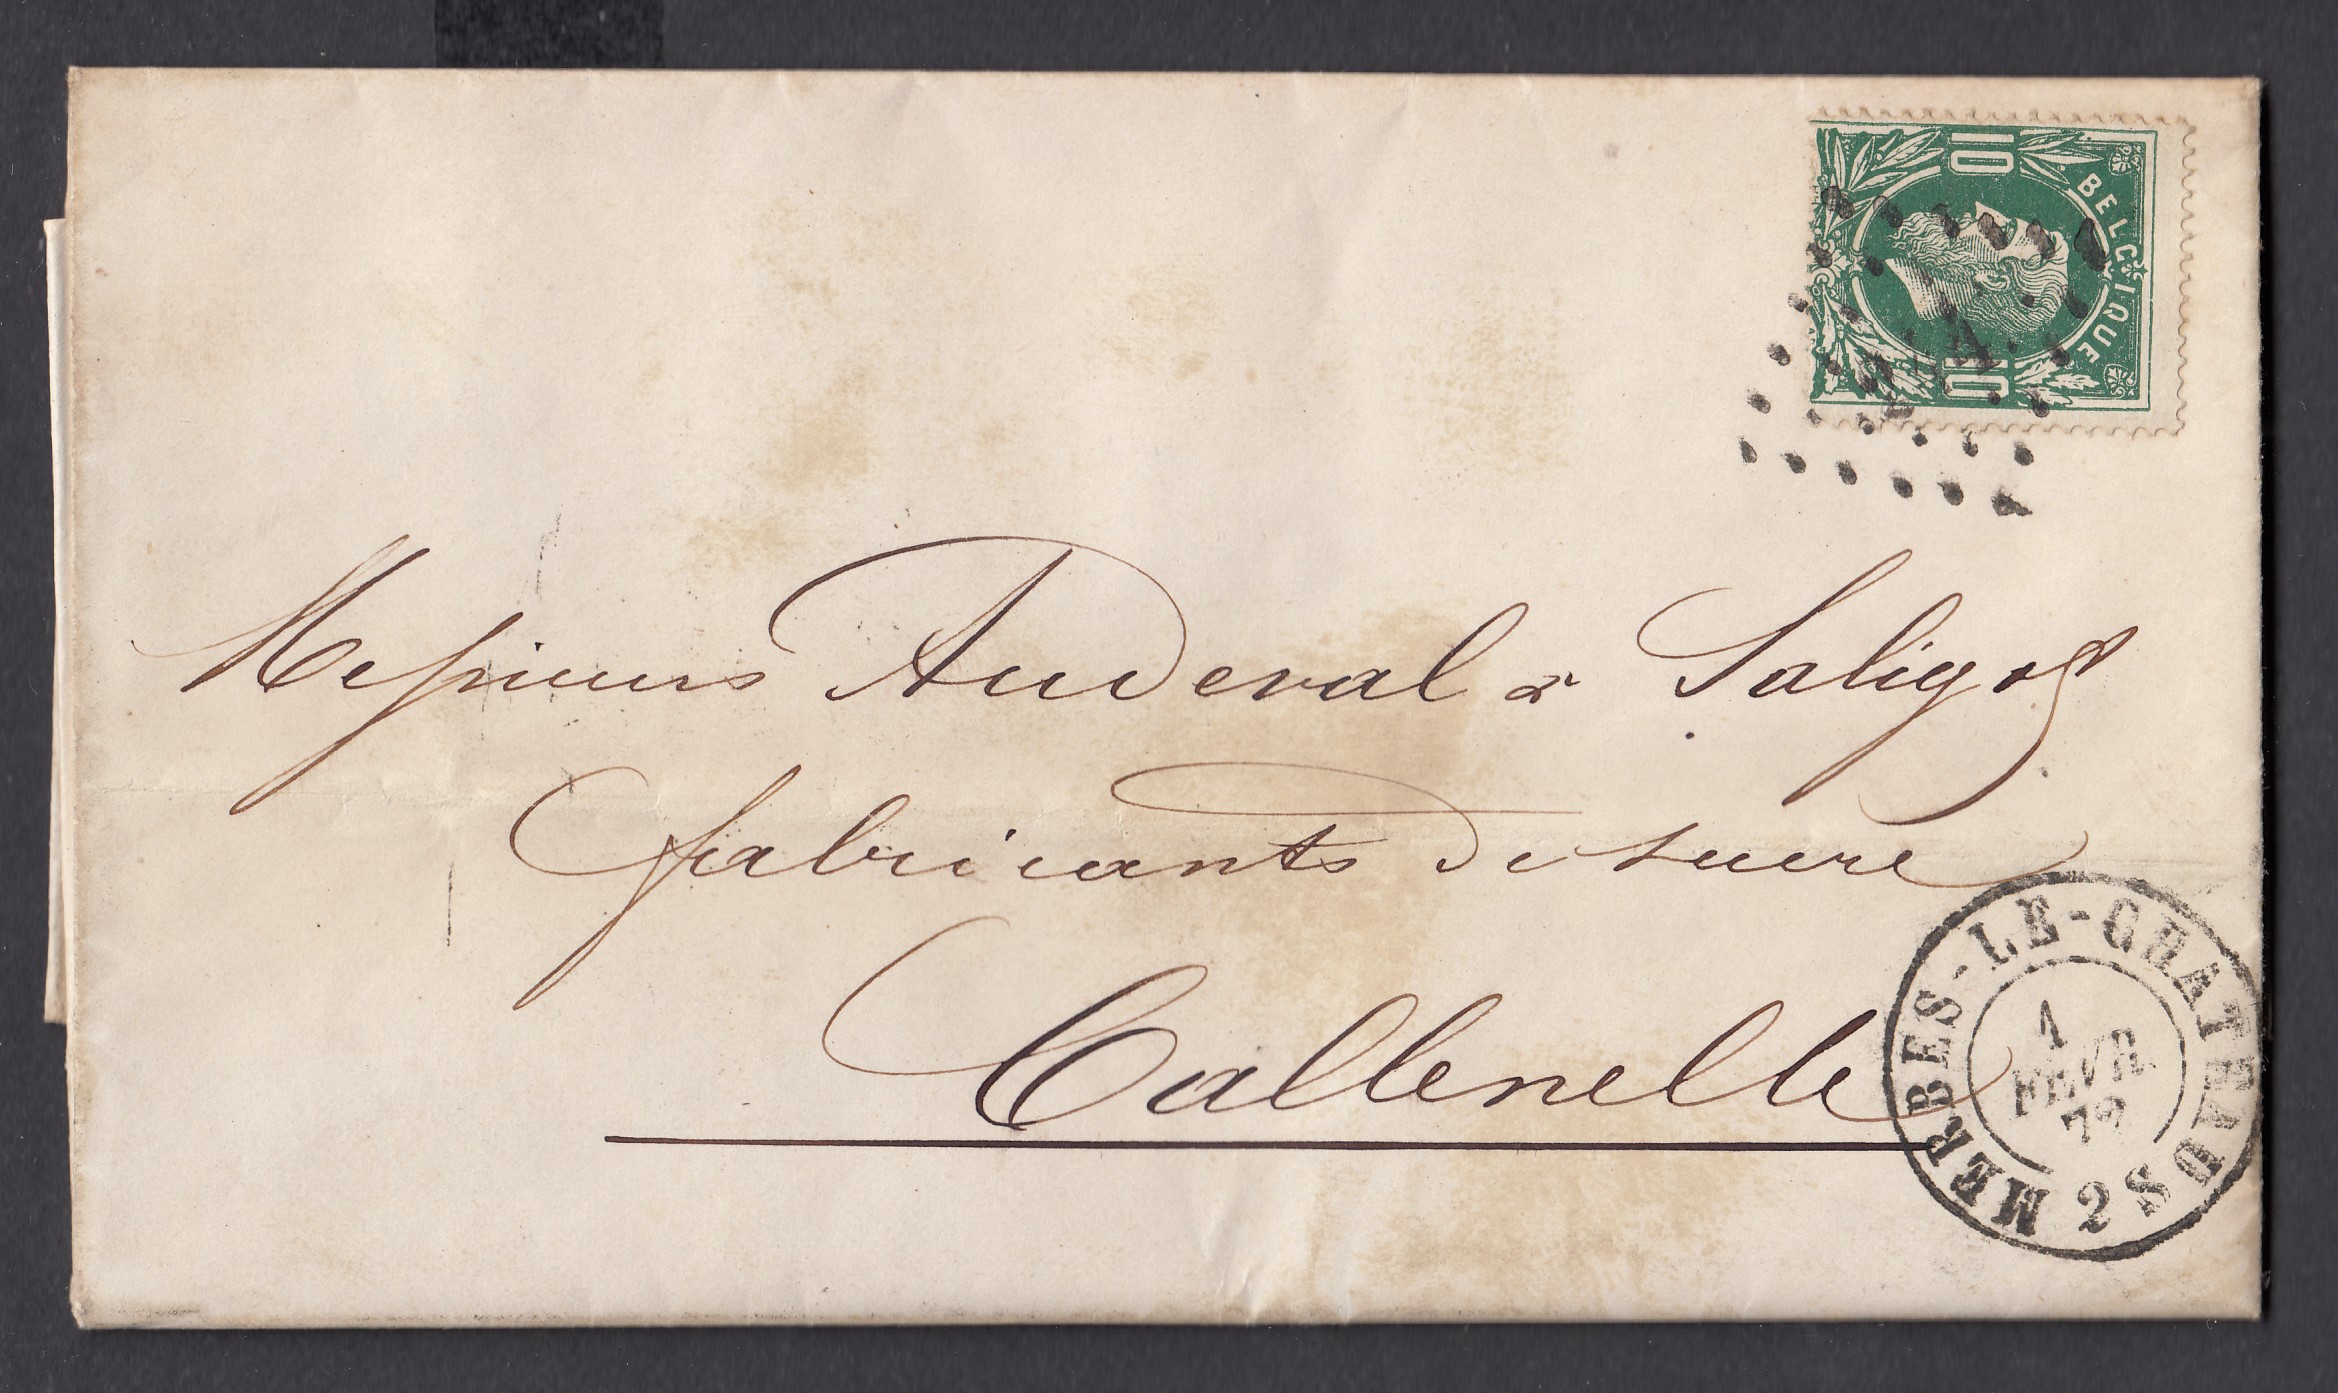 10 BELGIQUE 10
244
Messieurs Audeval & Saligot
fabricants de sucre
Callenelle
MERBES-LE-CHATEAU
1
FEVR.
72
2S